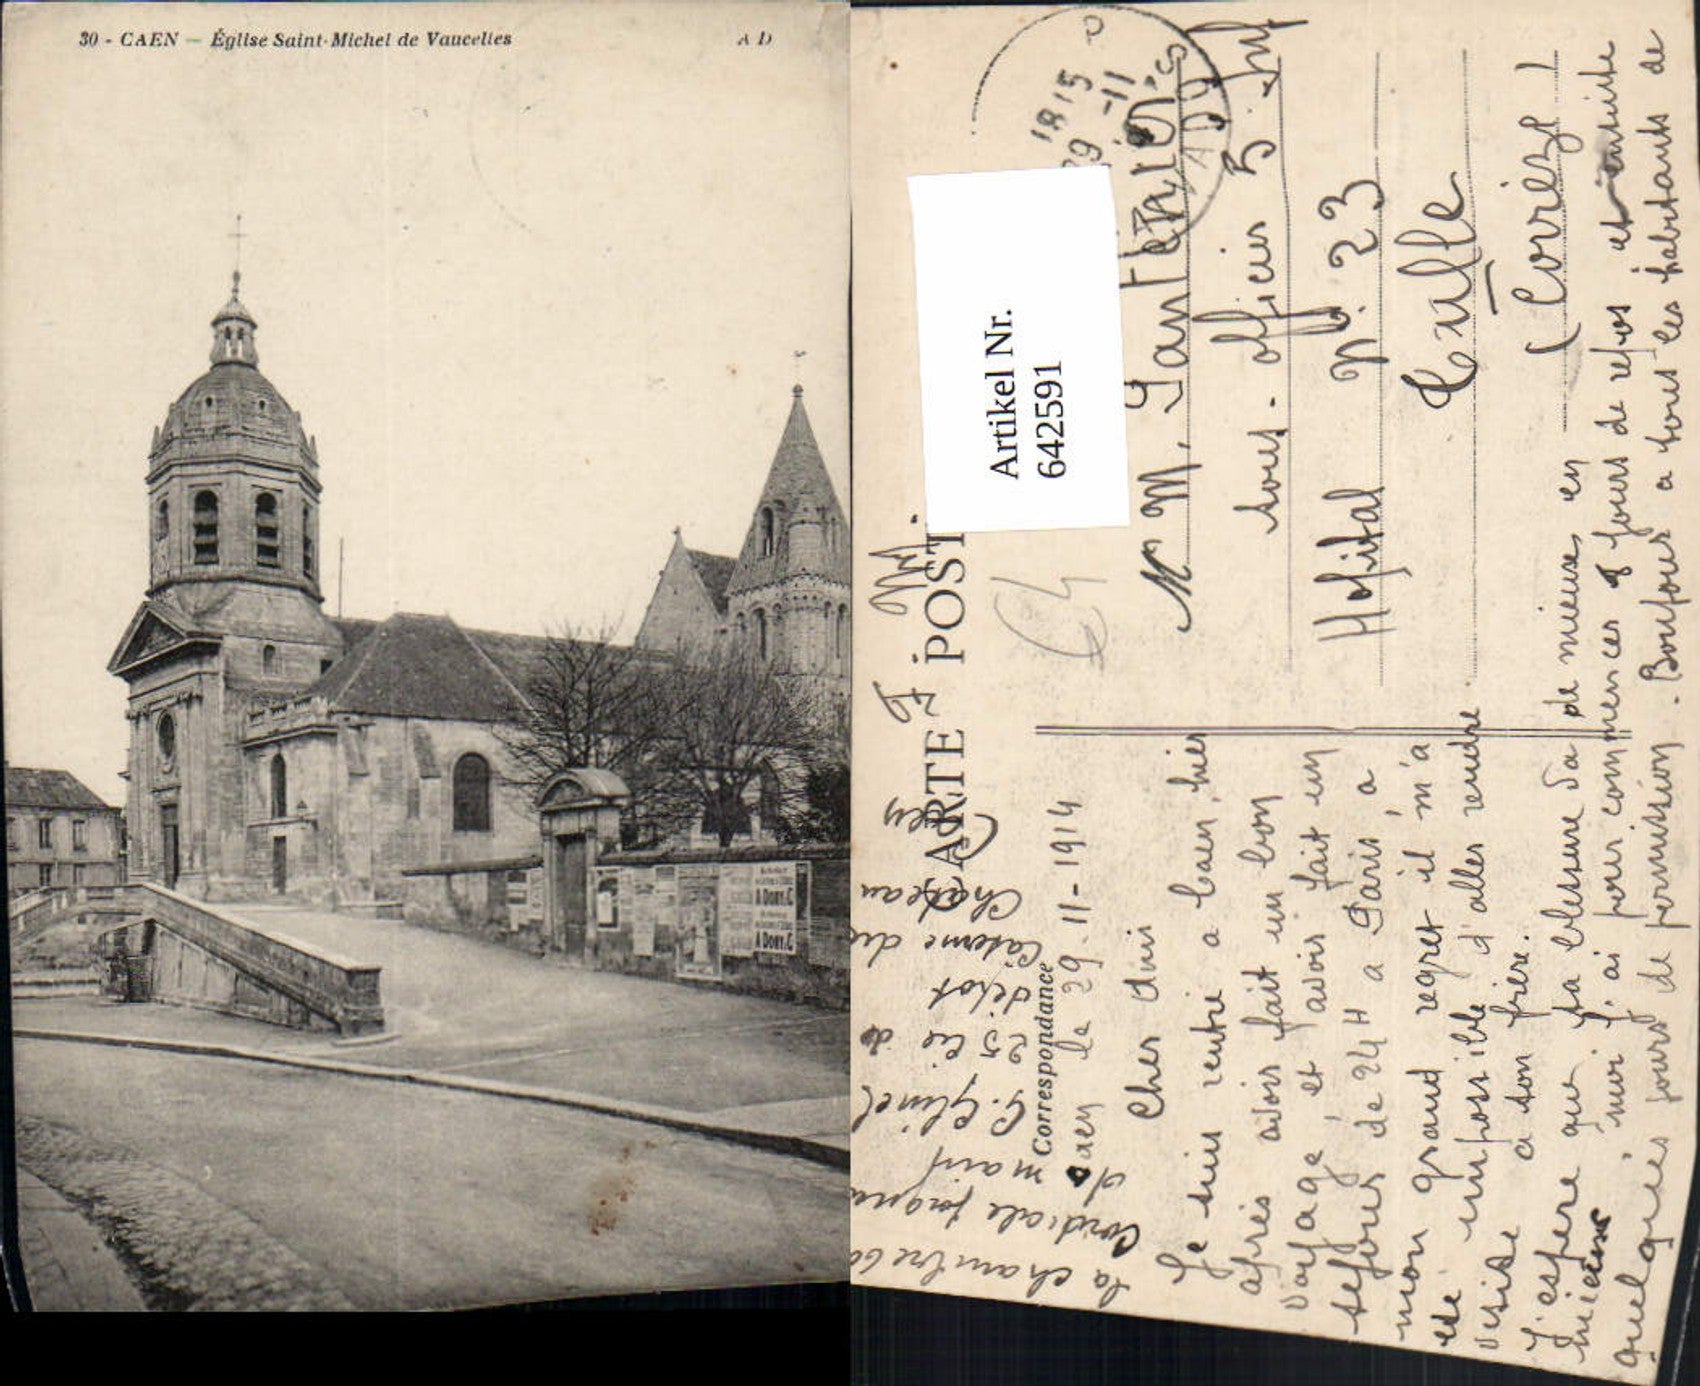 30 - CAEN — Église Saint-Michel de Vaucelles
A D
A DORY & C
A DORY & C
F. M.
CARTE POST
Artikel Nr.
642591
18 15
29 -11
Correspondance
Caen le 29-11-1914
Cher Ami
Je suis rentré a Caen, hier
après avoir fait un bon
voyage, et avoir fait un
séjour de 24 H a Paris, a
mon grand regret il m'a
été impossible d'aller rendre
visite a ton frère.
J'espère que ta blessure va de mieux en
mieux moi j'ai pour commencer 8 jours de repos et ensuite
quelques jours de permission. Bonjour a tous les habitants de
la chambre
Cordiale poignée
de main
G. Glinel
25 Cie de
dépôt
Caserne du
Château
Caen
Mr M.
sous-officier
Hôpital No. 23
Tulle
(Corrèze)